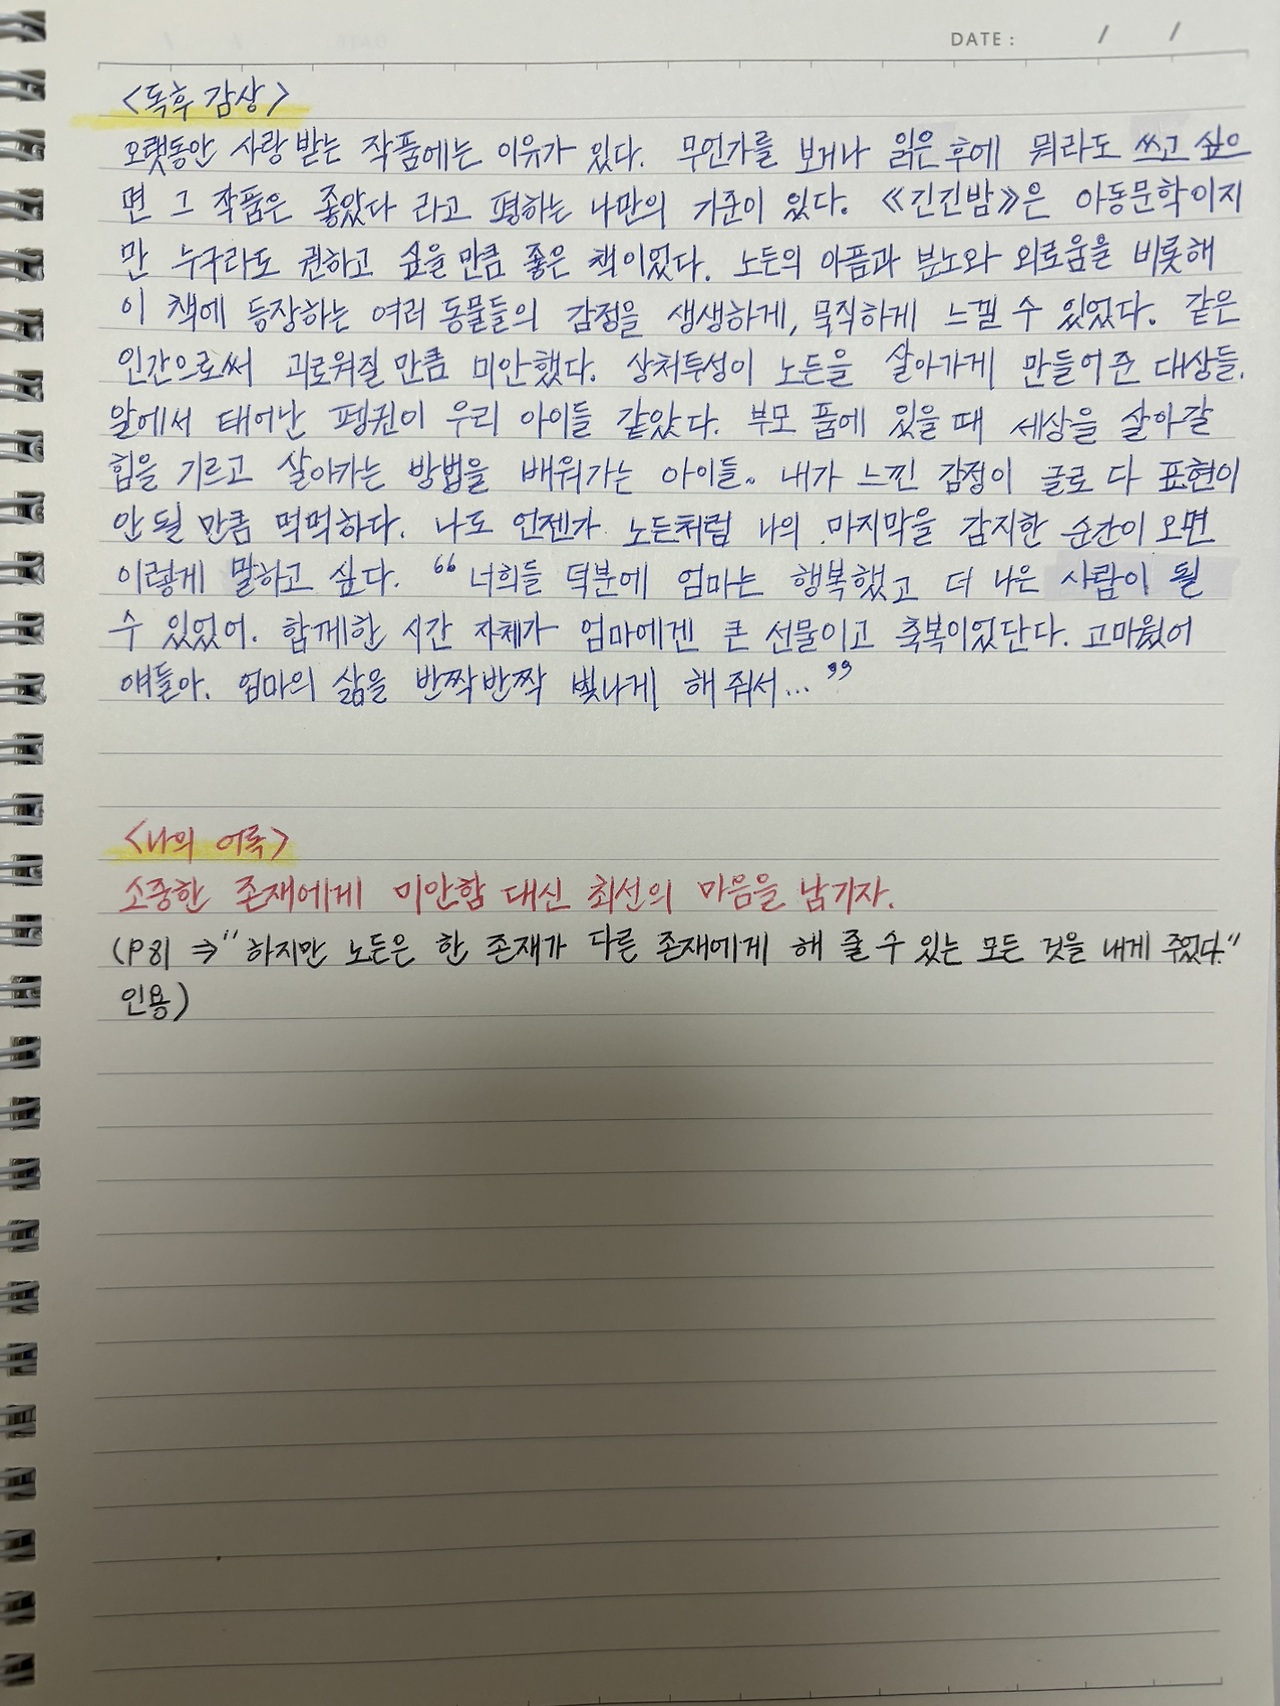 DATE : / /
<독후 감상>
오랫동안 사랑 받는 작품에는 이유가 있다. 무언가를 보거나 읽은 후에 뭐라도 쓰고 싶으
면 그 작품은 좋았다 라고 평하는 나만의 기준이 있다. 《긴긴밤》은 아동문학이지
만 누구라도 권하고 싶을 만큼 좋은 책이었다. 노든의 아픔과 분노와 외로움을 비롯해
이 책에 등장하는 여러 동물들의 감정을 생생하게, 묵직하게 느낄 수 있었다. 같은
인간으로써 괴로워질 만큼 미안했다. 상처투성이 노든을 살아가게 만들어 준 대상들.
알에서 태어난 펭귄이 우리 아이들 같았다. 부모 품에 있을 때 세상을 살아갈
힘을 기르고 살아가는 방법을 배워가는 아이들. 내가 느낀 감정이 글로 다 표현이
안 될 만큼 먹먹하다. 나도 언젠가 노든처럼 나의 마지막을 감지한 순간이 오면
이렇게 말하고 싶다. “너희들 덕분에 엄마는 행복했고 더 나은 사람이 될
수 있었어. 함께한 시간 자체가 엄마에겐 큰 선물이고 축복이었단다. 고마웠어
얘들아. 엄마의 삶을 반짝반짝 빛나게 해 줘서...”
<나의 어록>
소중한 존재에게 미안함 대신 최선의 마음을 남기자.
(P 81 ⇒ "하지만 노든은 한 존재가 다른 존재에게 해 줄 수 있는 모든 것을 내게 주었다."
인용)